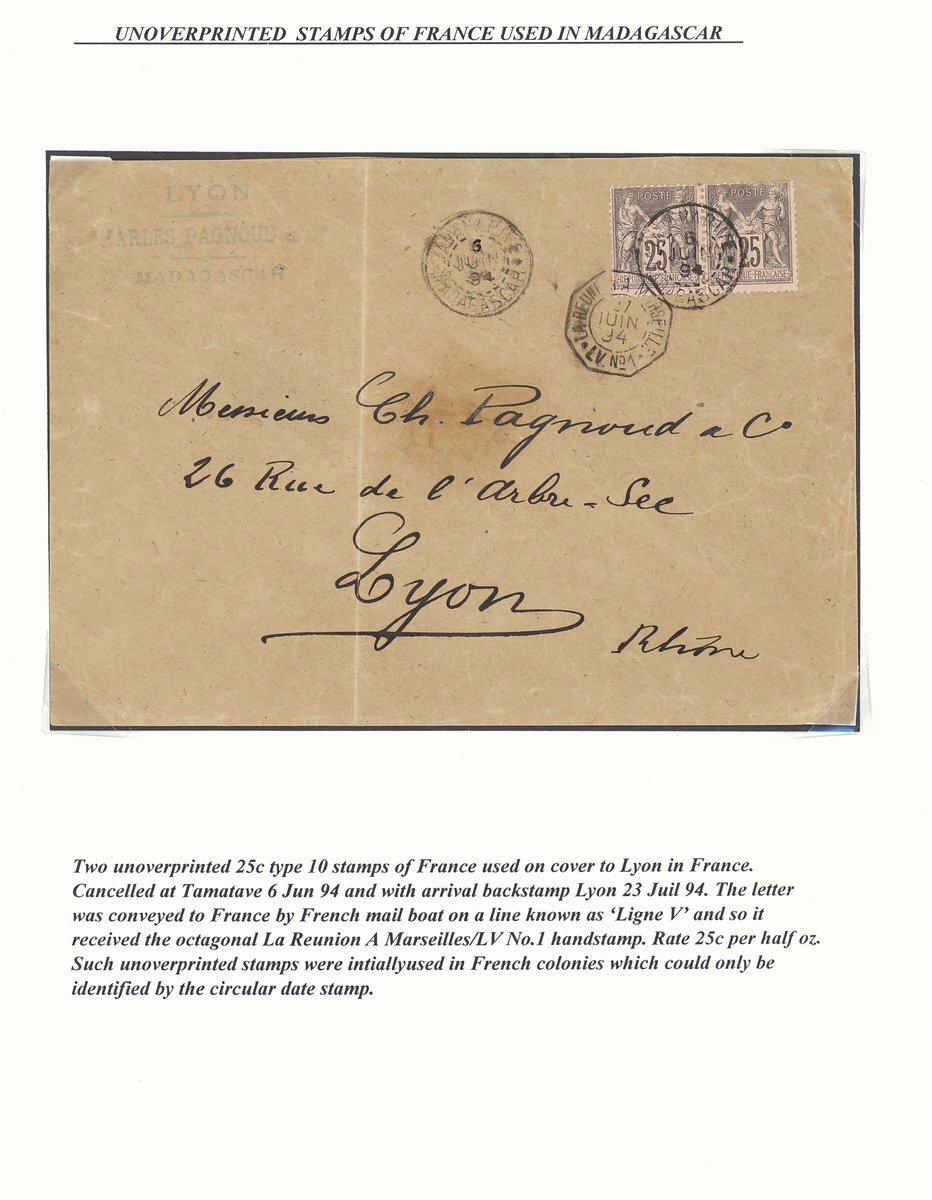 UNOVERPRINTED STAMPS OF FRANCE USED IN MADAGASCAR
LYON
CHARLES PAGNOUD &
MADAGASCAR
TANANARIVE
6
JUIN
94
MADAGASCAR
POSTE
POSTE
25
25
QUE-FRANÇAISE
6
JUIN
94
LA REUNION MARSEILLE
JUIN
94
LV. No1
Messieurs Ch. Pagnoud & Co
26 Rue de l'Arbre-Sec
Lyon
Rhône
Two unoverprinted 25c type 10 stamps of France used on cover to Lyon in France.
Cancelled at Tamatave 6 Jun 94 and with arrival backstamp Lyon 23 Juil 94. The letter
was conveyed to France by French mail boat on a line known as ‘Ligne V’ and so it
received the octagonal La Reunion A Marseilles/LV No.1 handstamp. Rate 25c per half oz.
Such unoverprinted stamps were intiallyused in French colonies which could only be
identified by the circular date stamp.